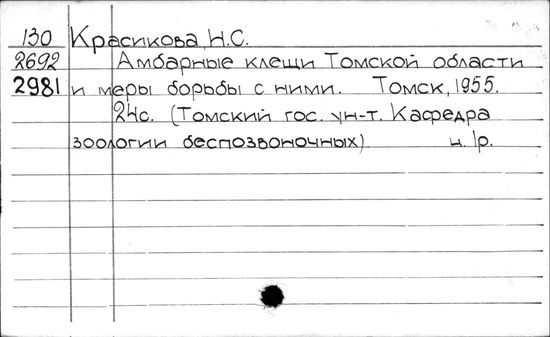 130 Красикова, Н.С.
2692 Амбарные клещи Томской области
2981 и меры борьбы с ними. Томск, 1955.
24с. (Томский гос. ун-т. Кафедра
зоологии беспозвоночных) ц. 1р.